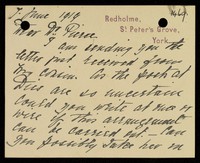 7 June 1919
Redholme,
St. Peter's Grove,
York.
Dear Dr Pierce
I am sending you the
letter just received from
my cousin. As the posts at
are so uncertain
Could you write at once
were if this arrangement
can be carried out - Can
you possibly take her in